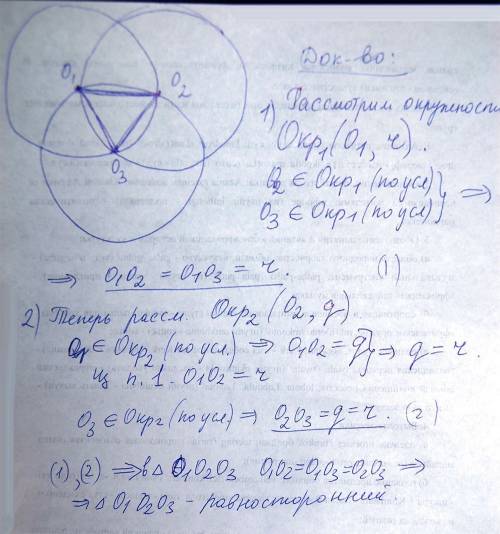 O1
O2
O3
Док-во:
1) Рассмотрим окружность
Окр1 (O1, r).
O2 ∈ Окр1 (по усл)
O3 ∈ Окр1 (по усл)} ⟹
⟹ O1O2 = O1O3 = r. (1)
2) Теперь рассм. Окр2 (O2, q)
O1 ∈ Окр2 (по усл.) ⟹ O1O2 = q} ⟹ q = r.
из п. 1. O1O2 = r
O3 ∈ Окр2 (по усл) ⟹ O2O3 = q = r. (2)
(1), (2) ⟹ в Δ O1O2O3 O1O2 = O1O3 = O2O3 ⟹
⟹ Δ O1O2O3 - равносторонний.